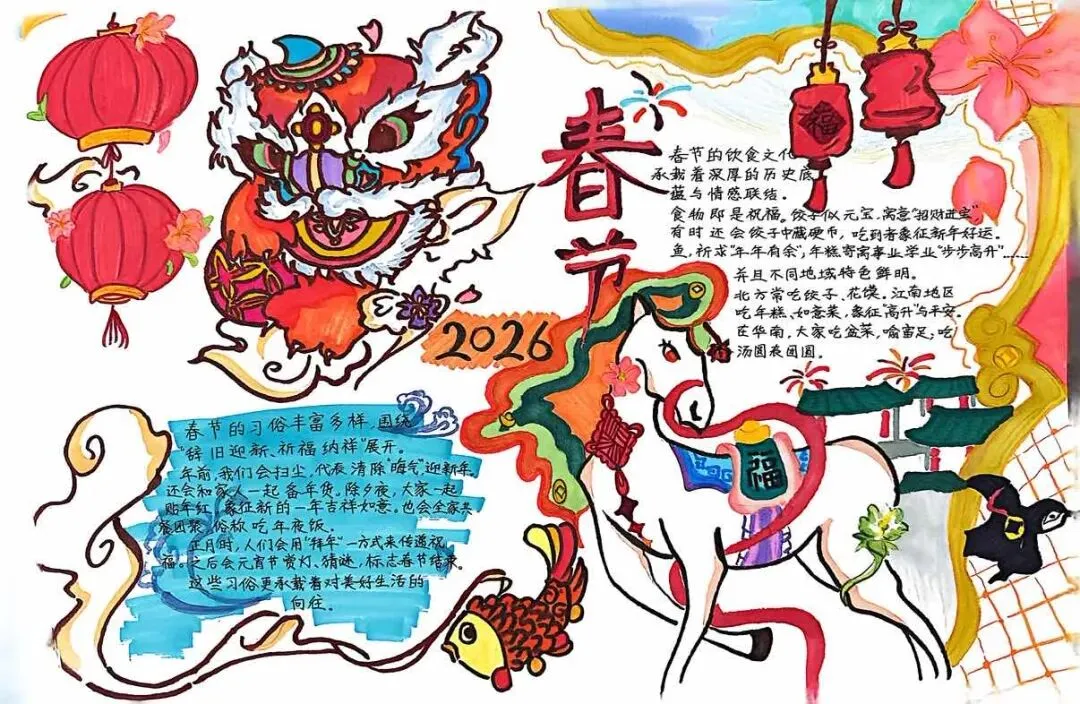 春节
2026
福
春节的饮食文化
承载着深厚的历史底
蕴与情感联结。
食物即是祝福。饺子似元宝,寓意"招财进宝"
有时还会饺子中藏硬币,吃到者象征新年好运。
鱼,祈求"年年有余",年糕寄寓事业学业"步步高升"......
并且不同地域特色鲜明。
北方常吃饺子、花馍。江南地区
吃年糕、如意菜,象征"高升"与平安。
在华南,大家吃盆菜,喻富足;吃
汤圆表团圆。
春
福
春节的习俗丰富多样,围绕
"辞旧迎新、祈福纳祥"展开。
年前,我们会扫尘,代表清除"晦气"迎新年,
还会和家人一起备年货。除夕夜,大家一起
贴年红,象征新的一年吉祥如意。也会全家共
聚团聚,俗称吃年夜饭。
正月时,人们会用"拜年"一方式来传递祝
福。之后会元宵节赏灯、猜谜,标志春节结束。
这些习俗更承载着对美好生活的
向往。